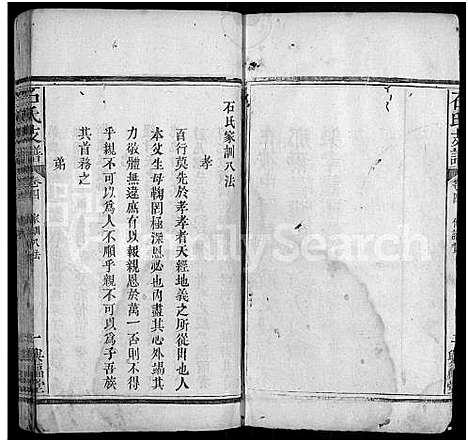 石氏支譜
卷四
石氏家訓八法
孝
百行莫先於孝孝者天經地義之所從出也人
本父生母鞠罔極深恩必也內盡其心外竭其
力敬體無違有以報親恩於萬一否則不得
乎親不可以為人不順乎親不可以為子吾族
其首務之
弟
石氏支譜
卷四
家訓八法
一
FamilySearch